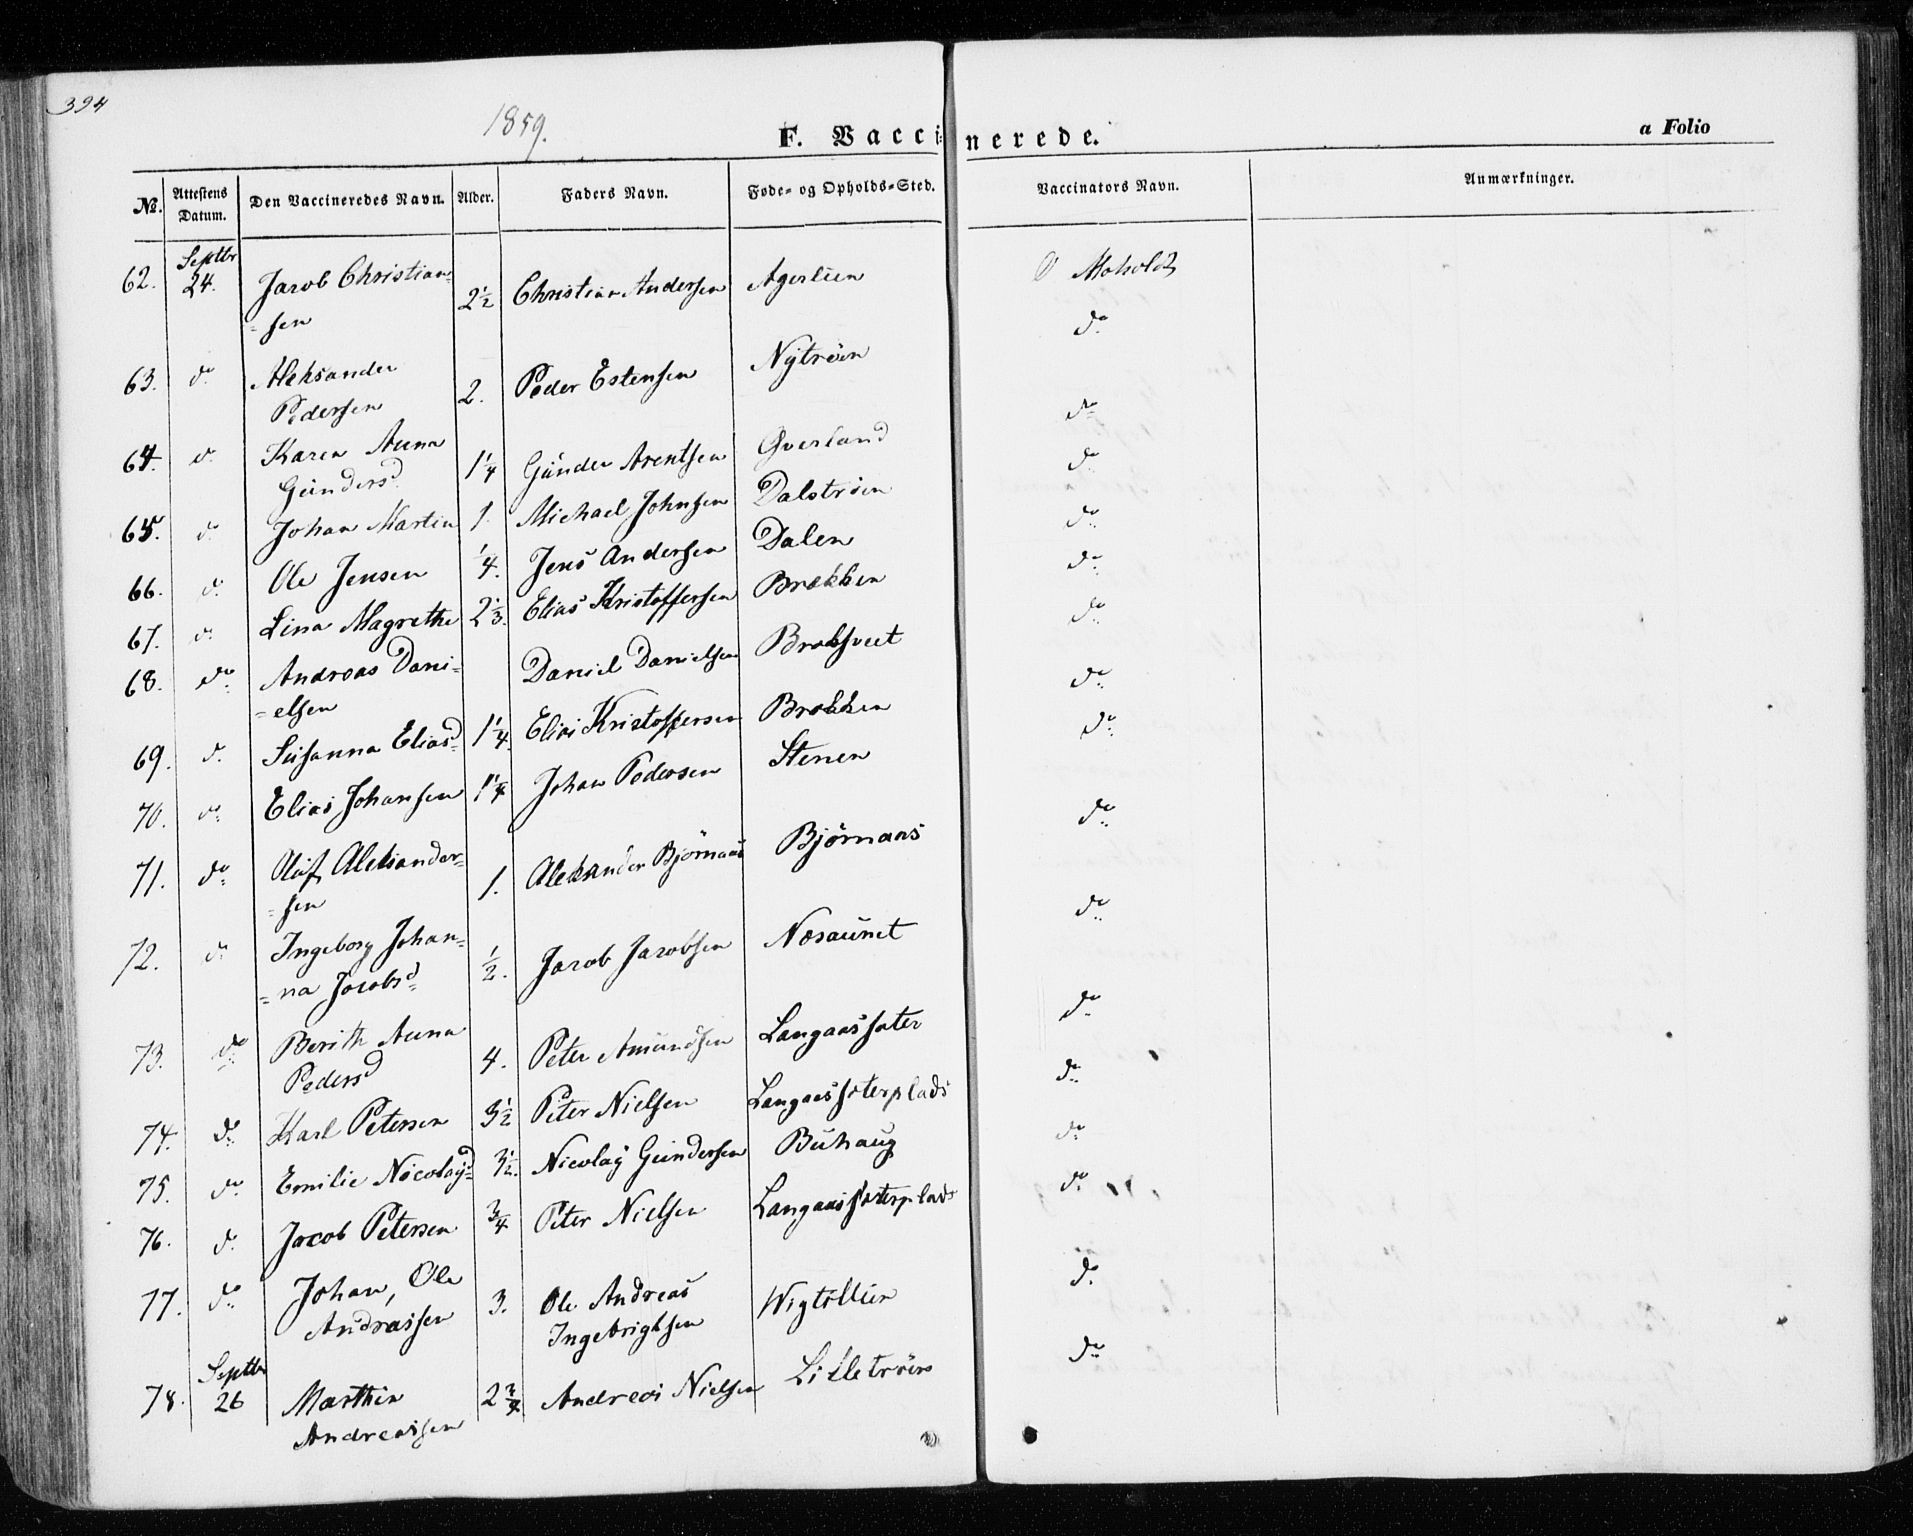 394
1859.
F. Vaccinerede.
a Folio
No. Attestens Datum. Den Vaccineredes Navn. Alder. Faders Navn. Føde- og Opholds-Sted. Vaccinators Navn. Anmærkninger.
Septbr
62. 24. Jacob Christian= 2½ Christian Andersen Agerlien O Moholdt
=sen
63. do Aleksander 2. Peder Estensen Nytrøen do
Pedersen
64. do Karen Anna 1¼ Gunder Arentsen Qverland do
Gundersd
65. do Johan Martin 1. Michael Johnsen Dalstrøen do
66. do Ole Jensen ¼. Jens Andersen Dalen do
67. do Lina Magrethe 2⅓. Elias Kristoffersen Brækken do
68. do Andreas Dani= Daniel Danielsen Bræksveet do
=elsen
69. do Susanna Eliasd 1¼. Elias Kristoffersen Brækken do
70. do Elias Johansen 1¼ Johan Pedersen Stenen do
71. do Oluf Aleksander= 1. Aleksander Bjørnaas Bjørnaas do
=sen
72. do Ingeborg Johan= ½. Jacob Jacobsen Næsaunet do
=na Jacobsd
73. do Berith Anna 4. Peter Amundsen Langaassæter do
Pedersd
74. do Karl Petersen 3½ Peter Nielsen Langaassæterplads do
75. do Emilie Nicolayd 3½. Nicolay Gundersen Buhaug do
76. do Jacob Petersen ¾ Peter Nielsen Langaassæterplads do
77. do Johan, Ole 3. Ole Andreas Wigtillien do
Andreassen Ingebrigtsen
Septbr
78. 26 Marthin 2¾ Andreas Nielsen Lilletrøen do
Andreassen